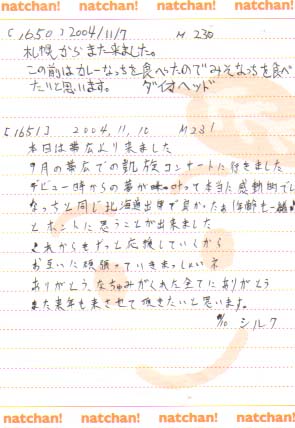 natchan! natchan! natchan! natchan!
[1650] 2004/11/7 M 230
札幌からまた来ました。
この前はカレーなっちを食べたのでみそなっちを食べ
たいと思います。 ダイオヘッド
[1651] 2004.11.10 M231
本日は帯広より来ました
9月の帯広での凱旋コンサートに行きました
デビュー時からの夢が叶って本当に感動的でし
なっちと同じ北海道出身で良かったぁ(年齢も一緒
とホントに思うことが出来ました
これからもずっと応援していくから
お互いに頑張っていきまっしょいネ
ありがとう、なちゅみがくれた全てにありがとう
また来年も来させて頂きたいと思います。
11/10 シルク
natchan! natchan! natchan! natchan!